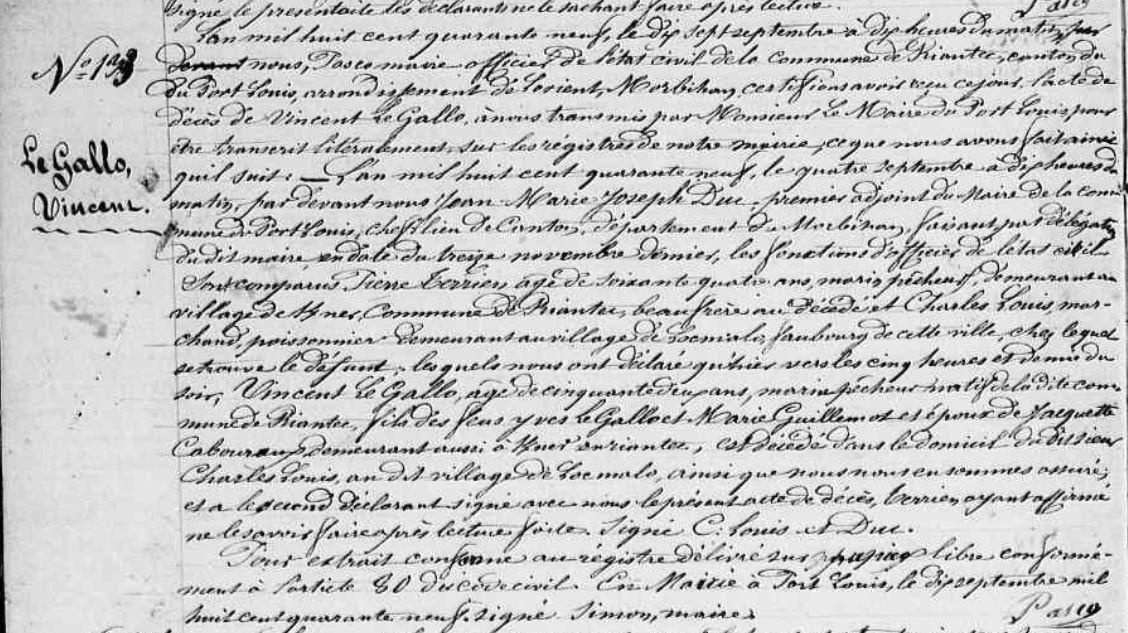 signé le présent acte les déclarants ne le sachant faire après lecture. Pasco
L'an mil huit cent quarante neuf, le dix sept septembre à dix heures du matin, par
N.º 133
devant nous, Pasco maire officier de l'état civil de la Commune de Riantec, canton du
du Port Louis, arrondissement de Lorient, Morbihan, certifions avoir reçu ce jour, l'acte de
décès de Vincent Le Gallo, à nous transmis par Monsieur Le Maire du Port Louis, pour
être transcrit litéralement, sur les registres de notre mairie, ce que nous avons fait ainsi
Le Gallo,
qu'il suit: — L'an mil huit cent quarante neuf, le quatre septembre à dix heures du
Vincent.
matin, par devant nous Jean Marie Joseph Duc, premier adjoint du Maire de la com
mune du Port Louis, chef lieu de Canton, département du Morbihan, faisant par délégation
du dit maire en date du treize novembre dernier, les fonctions d'officier de l'état civil
Sont comparus Pierre Terrien âgé de soixante quatre ans, marin pêcheur, demeurant au
village de Kner, Commune de Riantec, beau frère au décédé et Charles Louis, mar-
chand, poissonnier demeurant au village de Locmalo, faubourg de cette ville, chez lequel
se trouve le défunt, lesquels nous ont déclaré qu'hier vers les cinq heures et demie du
soir, Vincent Le Gallo, âgé de cinquante deux ans, marin pêcheur natif de la dite com
mune de Riantec, fils des feus Yves le Gallo et Marie Guillemot et époux de Jacquette
Cabourau, demeurant aussi à Kner en riantec, est décédé dans le domicil du dit sieur
Charles Louis, au dit village de Locmalo, ainsi que nous nous en sommes assuré;
et a le second déclarant signé avec nous le présent acte de décès, Terrien ayant affirmé
ne le savoir faire après lecture faite. Signé C. Louis et Duc.
Pour extrait conforme au registre délivré sur papier libre conformé-
ment à l'article 80 du code civil. En Mairie à Port Louis, le dix septembre mil
huit cent quarante neuf. Signé Simon, maire.
Pasco